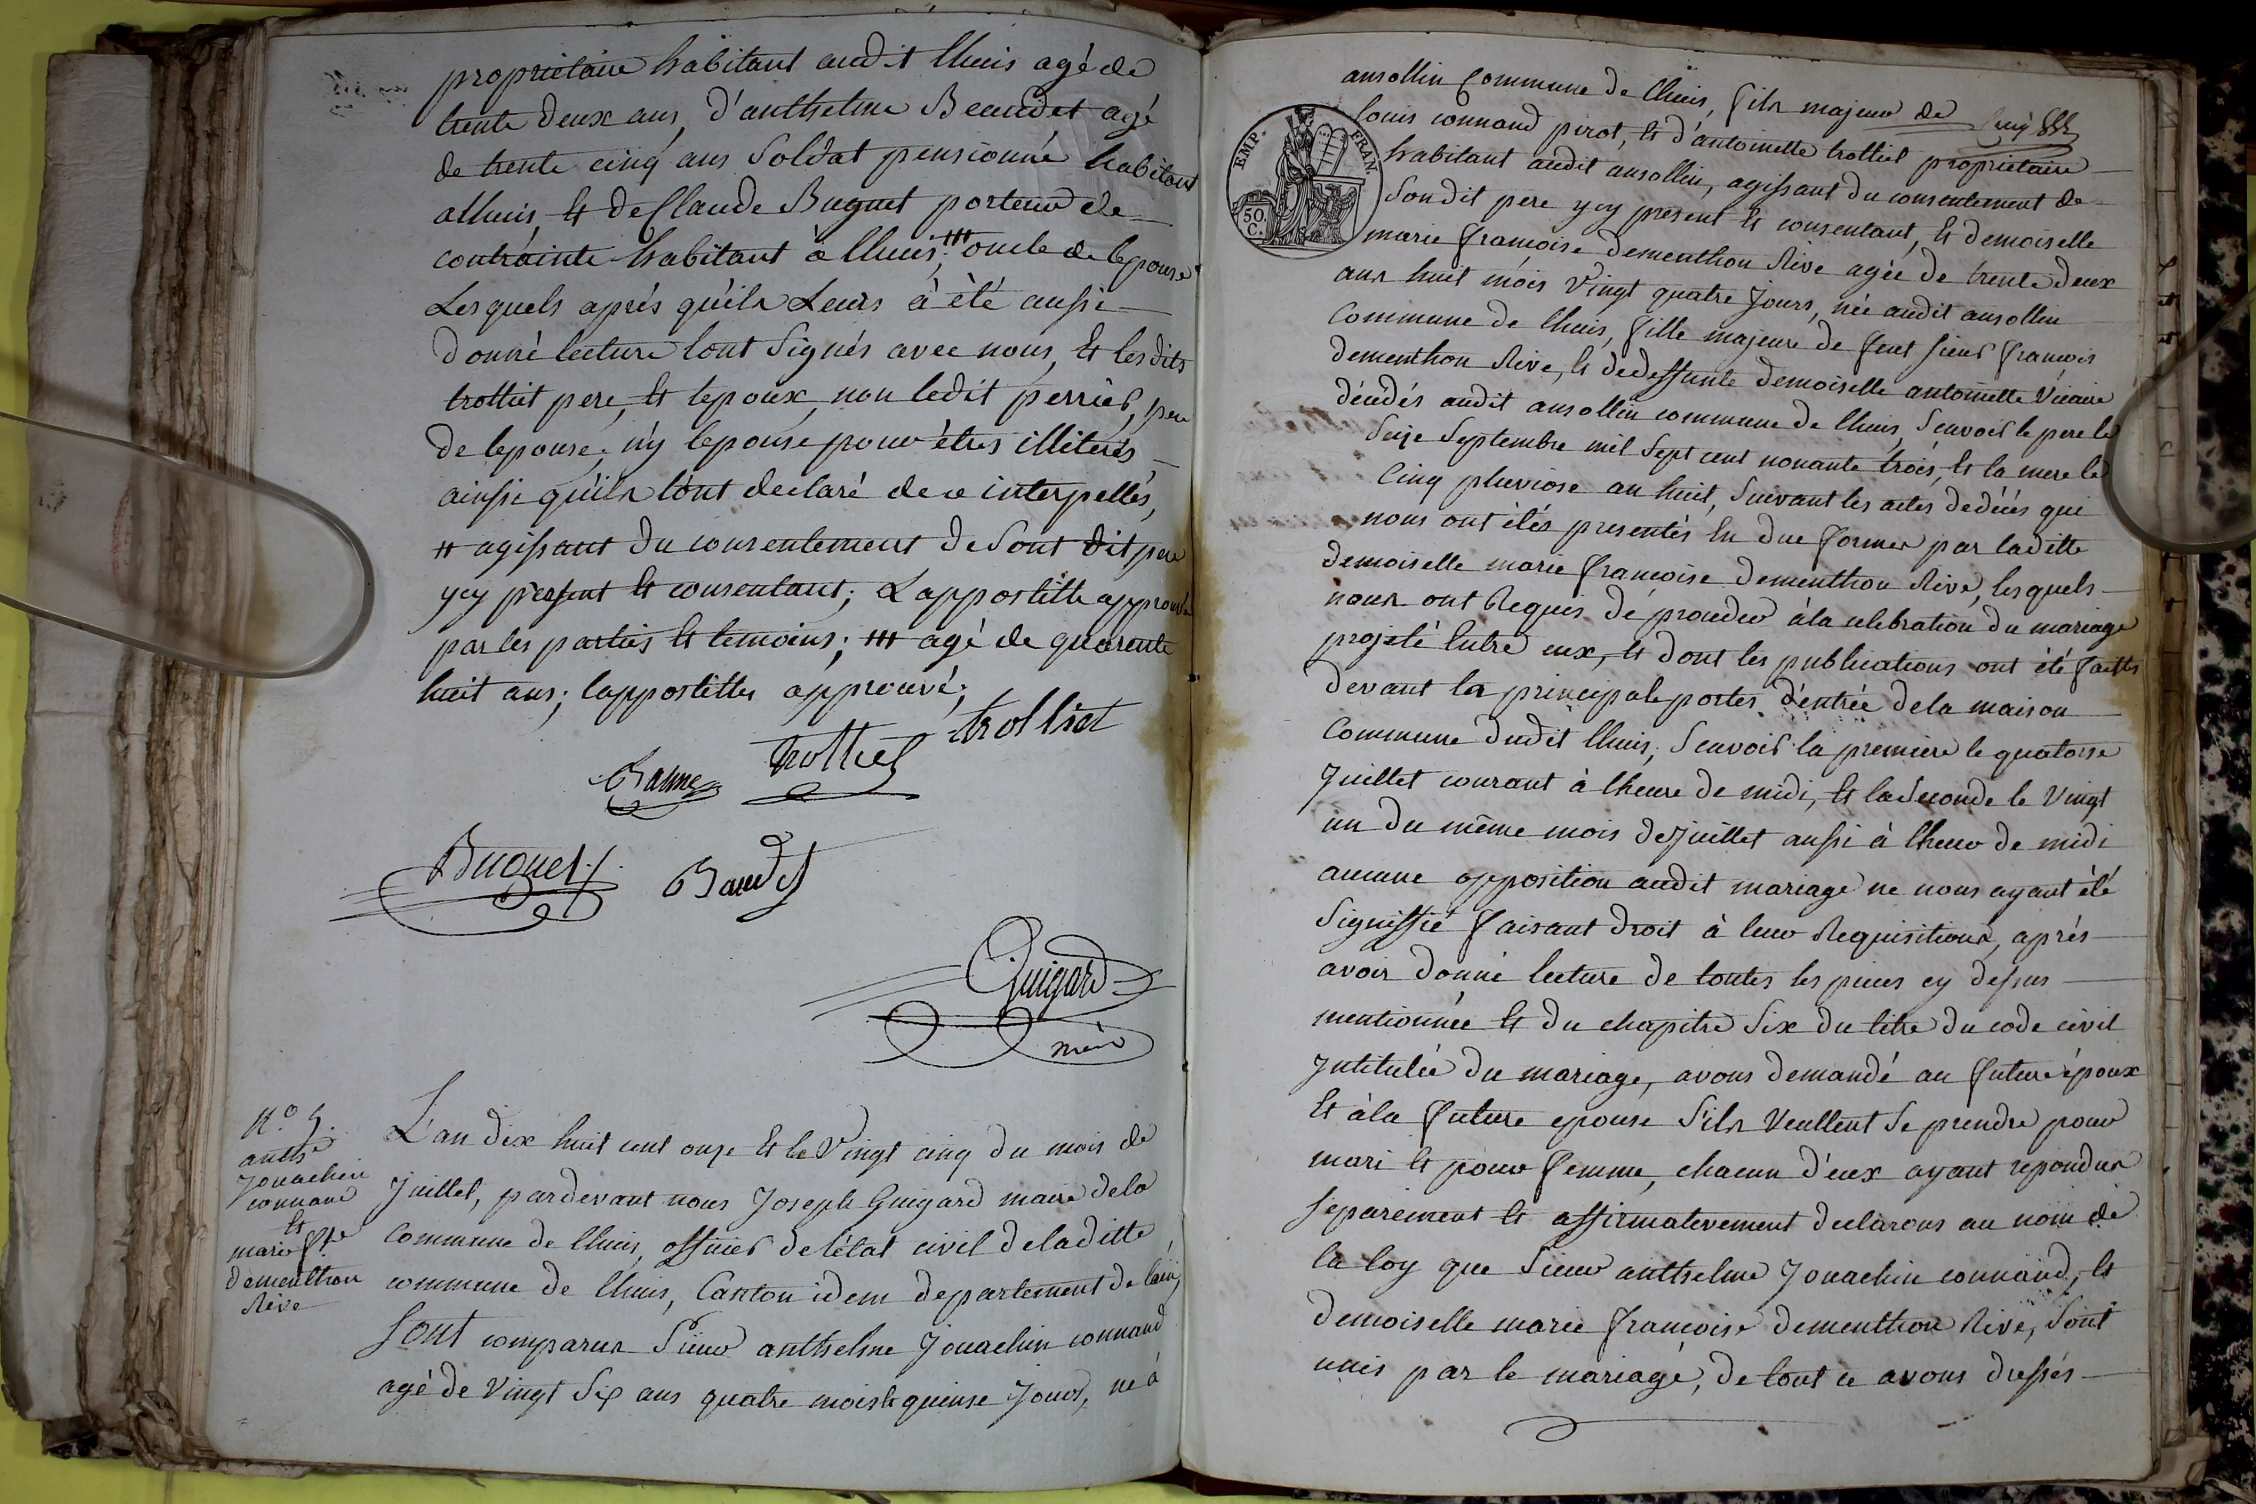 propriétaire habitant audit lhuis agé de
trente deux ans, d'anthelme Beaudet agé
de trente cinq ans Soldat pensionné habitant
alhuis, et de Claude Buguet porteur de
contrainte habitant à lhuis; ҂҂҂ oncle de lepouse
Lesquels aprés qu'ils Leurs à été aussi
donné lecture l'ont Signés avec nous, et lesdits
trolliet pere, et lepoux, non ledit perrier, pere
de lepouse, n'y lepouse pour êtres illiterés
ainsi qu'ils l'ont declaré de ce interpellés,
# agissant du consentement de Sont dit pere
ycy présent et consentant; Lappostille approuvé
par les parties et temoins; ҂҂҂ agé de quarente
huit ans; lappostilles approuvé;
trolliet
trolliet
Buguet
Baudet
Guigard
maire
N.° 5.
anthe
Jouachin
connand
et
marie fse
dementhon
Rive
L'an dix huit cent onze et le Vingt cinq du mois de
Juillet, pardevant nous Joseph Guigard maire dela
Commune de lhuis, officier de l'état civil deladitte
commune de lhuis, Canton idem departement de lain,
Sont comparus Sieur anthelme Jouachin connand
agé de Vingt Six ans quatre mois et quinse Jours, né à
EMP. FRAN.
50.
C.
ansollin Commune de lhuis, fils majeur de
Louis connand perot, et d'antoinette trolliet proprietaire
habitant audit ansollin, agissant du consentement de
Sondit pere ycy present et consentant, et demoiselle
marie françoise dementhon Rive agée de trente deux
ans huit mois Vingt quatre Jours, née audit ansollin
Commune de lhuis, fille majeure de feut Sieur françois
dementhon Rive, et dedeffunte demoiselle antoinette Vicaire
décédés audit ansollin commune de lhuis, Scavoir le pere le
Seize Septembre mil Sept cent nonante trois, et la mere le
Cinq pluviose an huit, Suivant les actes dedécés qui
nous ont étés presentés en due formes par laditte
demoiselle marie françoise dementhon Rive, lesquels
nous ont Requis de proceder àla celebration du mariage
projeté Entre eux, et dont les publications ont été faittes
devant la principale portes d'entrée dela maison
Commune dudit lhuis, Scavoir la premiere le quatorse
Juillet courant à lheure de midi, et la Seconde le Vingt
un du même mois de Juillet aussi à lheure de midi
aucune opposition audit mariage ne nous ayant été
Signiffié faisant droit à leur Requisitions, aprés
avoir donné lecture de toutes les pieces cy dessus
mentionnée et du chapitre Six du titre du code civil
Intitulée du mariage, avons demandé au future époux
et àla future epouse S'ils Veullent Se prendre pour
mari et pour femme, chacun d'eux ayant repondus
Séparément et affirmativement declarons au nom de
la loy que Sieur anthelme Jouachin connand, et
demoiselle marie françoise dementhon Rive, Sont
unis par le mariage, de tout ce avons dressés